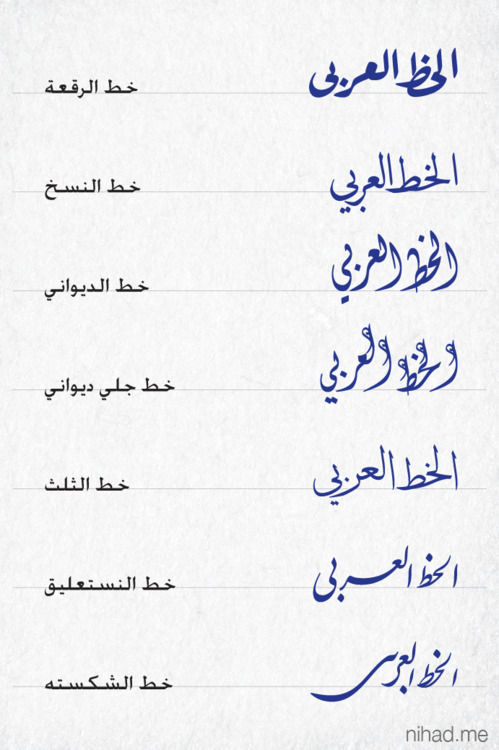 الخط العربي خط الرقعة
الخط العربي خط النسخ
الخط العربي خط الديواني
الخط العربي خط جلي ديواني
الخط العربي خط الثلث
الخط العربي خط النستعليق
الخط العربي خط الشكسته
nihad.me